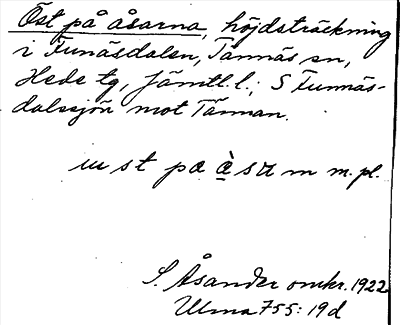 Öst på åsarna, höjdsträckning
i Funäsdalen, Tännäs sn,
Hede tg, Jämtl. l.; S Funnäs-
dalssjön mot Tännan.
st pa m m. pl.
S. Åsander omkr. 1922
Ulma 755: 19d